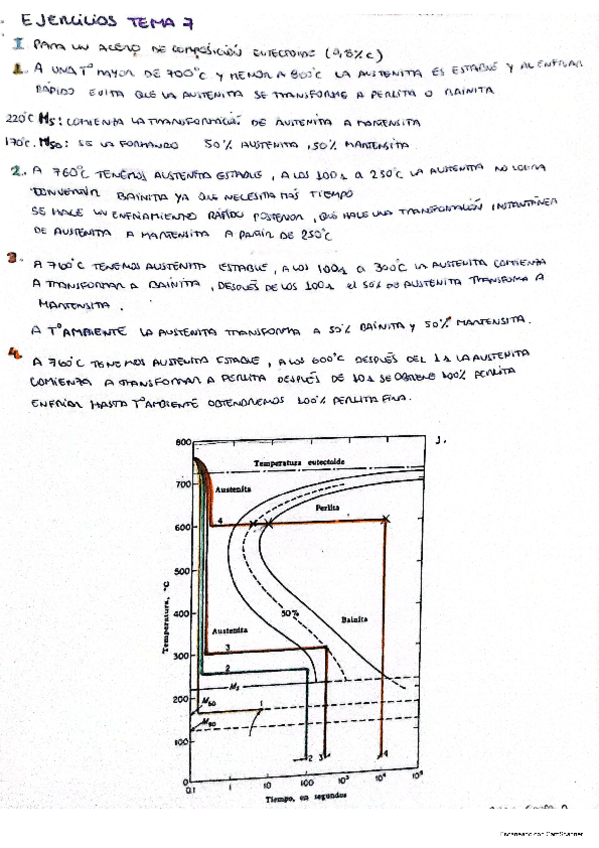 EJERCICIOS TEMA 7
I PARA UN ACERO DE COMPOSICIÓN EUTECTOIDE (0,8%C)
1. A UNA Tº MAYOR DE 700ºC Y MENOR A 800ºC LA AUSTENITA ES ESTABLE Y AL ENFRIAR
RÁPIDO EVITA QUE LA AUSTENITA SE TRANSFORME A PERLITA O BAINITA
220ºC Ms: COMIENZA LA TRANSFORMACIÓN DE AUSTENITA A MARTENSITA
170ºC. M50: SE VA FORMANDO 50% AUSTENITA, 50% MARTENSITA.
2. A 760ºC TENEMOS AUSTENITA ESTABLE, A LOS 100s A 250ºC LA AUSTENITA NO LOGRA
CONVERTIR BAINITA YA QUE NECESITA MÁS TIEMPO
SE HACE UN ENFRIAMIENTO RÁPIDO POSTERIOR, QUE HACE UNA TRANSFORMACIÓN INSTANTÁNEA
DE AUSTENITA A MARTENSITA A PARTIR DE 250ºC
3. A 760ºC TENEMOS AUSTENITA ESTABLE, A LOS 100s A 300ºC LA AUSTENITA COMIENZA
A TRANSFORMAR A BAINITA, DESPUÉS DE LOS 100s el 50% DE AUSTENITA TRANSFORMA A
MARTENSITA.
A Tº AMBIENTE LA AUSTENITA TRANSFORMA A 50% BAINITA Y 50% MARTENSITA.
4. A 760ºC TENEMOS AUSTENITA ESTABLE, A LOS 600ºC DESPUÉS DEL 1s LA AUSTENITA
COMIENZA A TRANSFORMAR A PERLITA DESPUÉS DE 10s SE OBTIENE 100% PERLITA
ENFRIAR HASTA Tº AMBIENTE OBTENDREMOS 100% PERLITA FINA.
800
Temperatura eutectoide
700
Austenita
Perlita
600
4
500
Temperatura, °C
400
50%
Bainita
Austenita
300
3
2
Ms
200
M50
1
M90
100
2
3
4
0
0.1 1 10 100 10³ 10⁴ 10⁵
Tiempo, en segundos
Escaneado con CamScanner